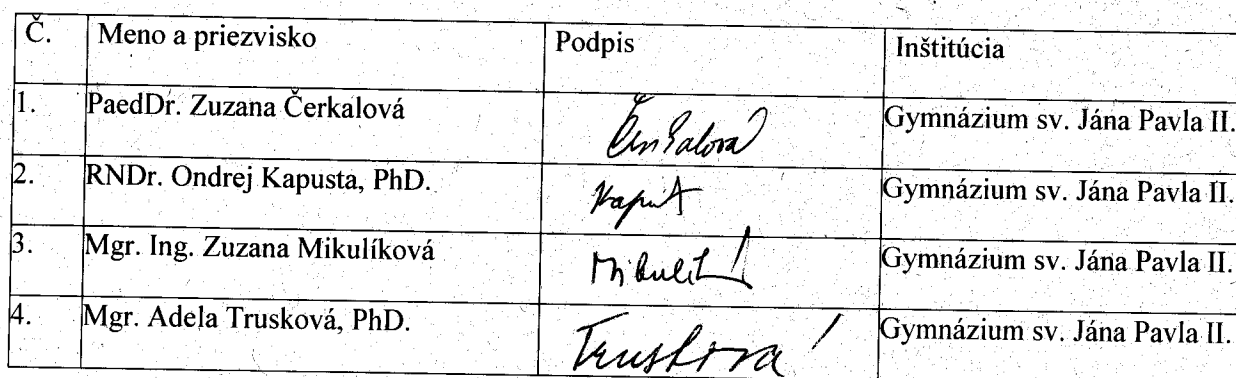 Č. Meno a priezvisko Podpis Inštitúcia
1. PaedDr. Zuzana Čerkalová Čerkalová Gymnázium sv. Jána Pavla II.
2. RNDr. Ondrej Kapusta, PhD. Gymnázium sv. Jána Pavla II.
3. Mgr. Ing. Zuzana Mikulíková Gymnázium sv. Jána Pavla II.
4. Mgr. Adela Trusková, PhD. Trusková Gymnázium sv. Jána Pavla II.